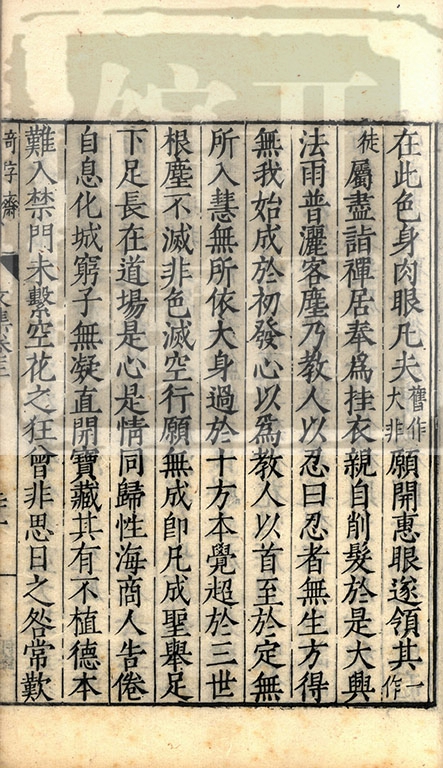 在此色身肉眼凡夫舊作大非願開惠眼遂領其一作
徒屬盡詣禪居奉為挂衣親自削髮於是大興
法雨普灑客塵乃教人以忍曰忍者無生方得
無我始成於初發心以為教人以首至於定無
所入慧無所依大身過於十方本覺超於三世
根塵不滅非色滅空行願無成卽凡成聖舉足
下足長在道場是心是情同歸性海商人告倦
自息化城窮子無凝直開寶藏其有不植德本
難入禁門未繫空花之狂曾非思日之咎常歎
奇字齋
文集卷三